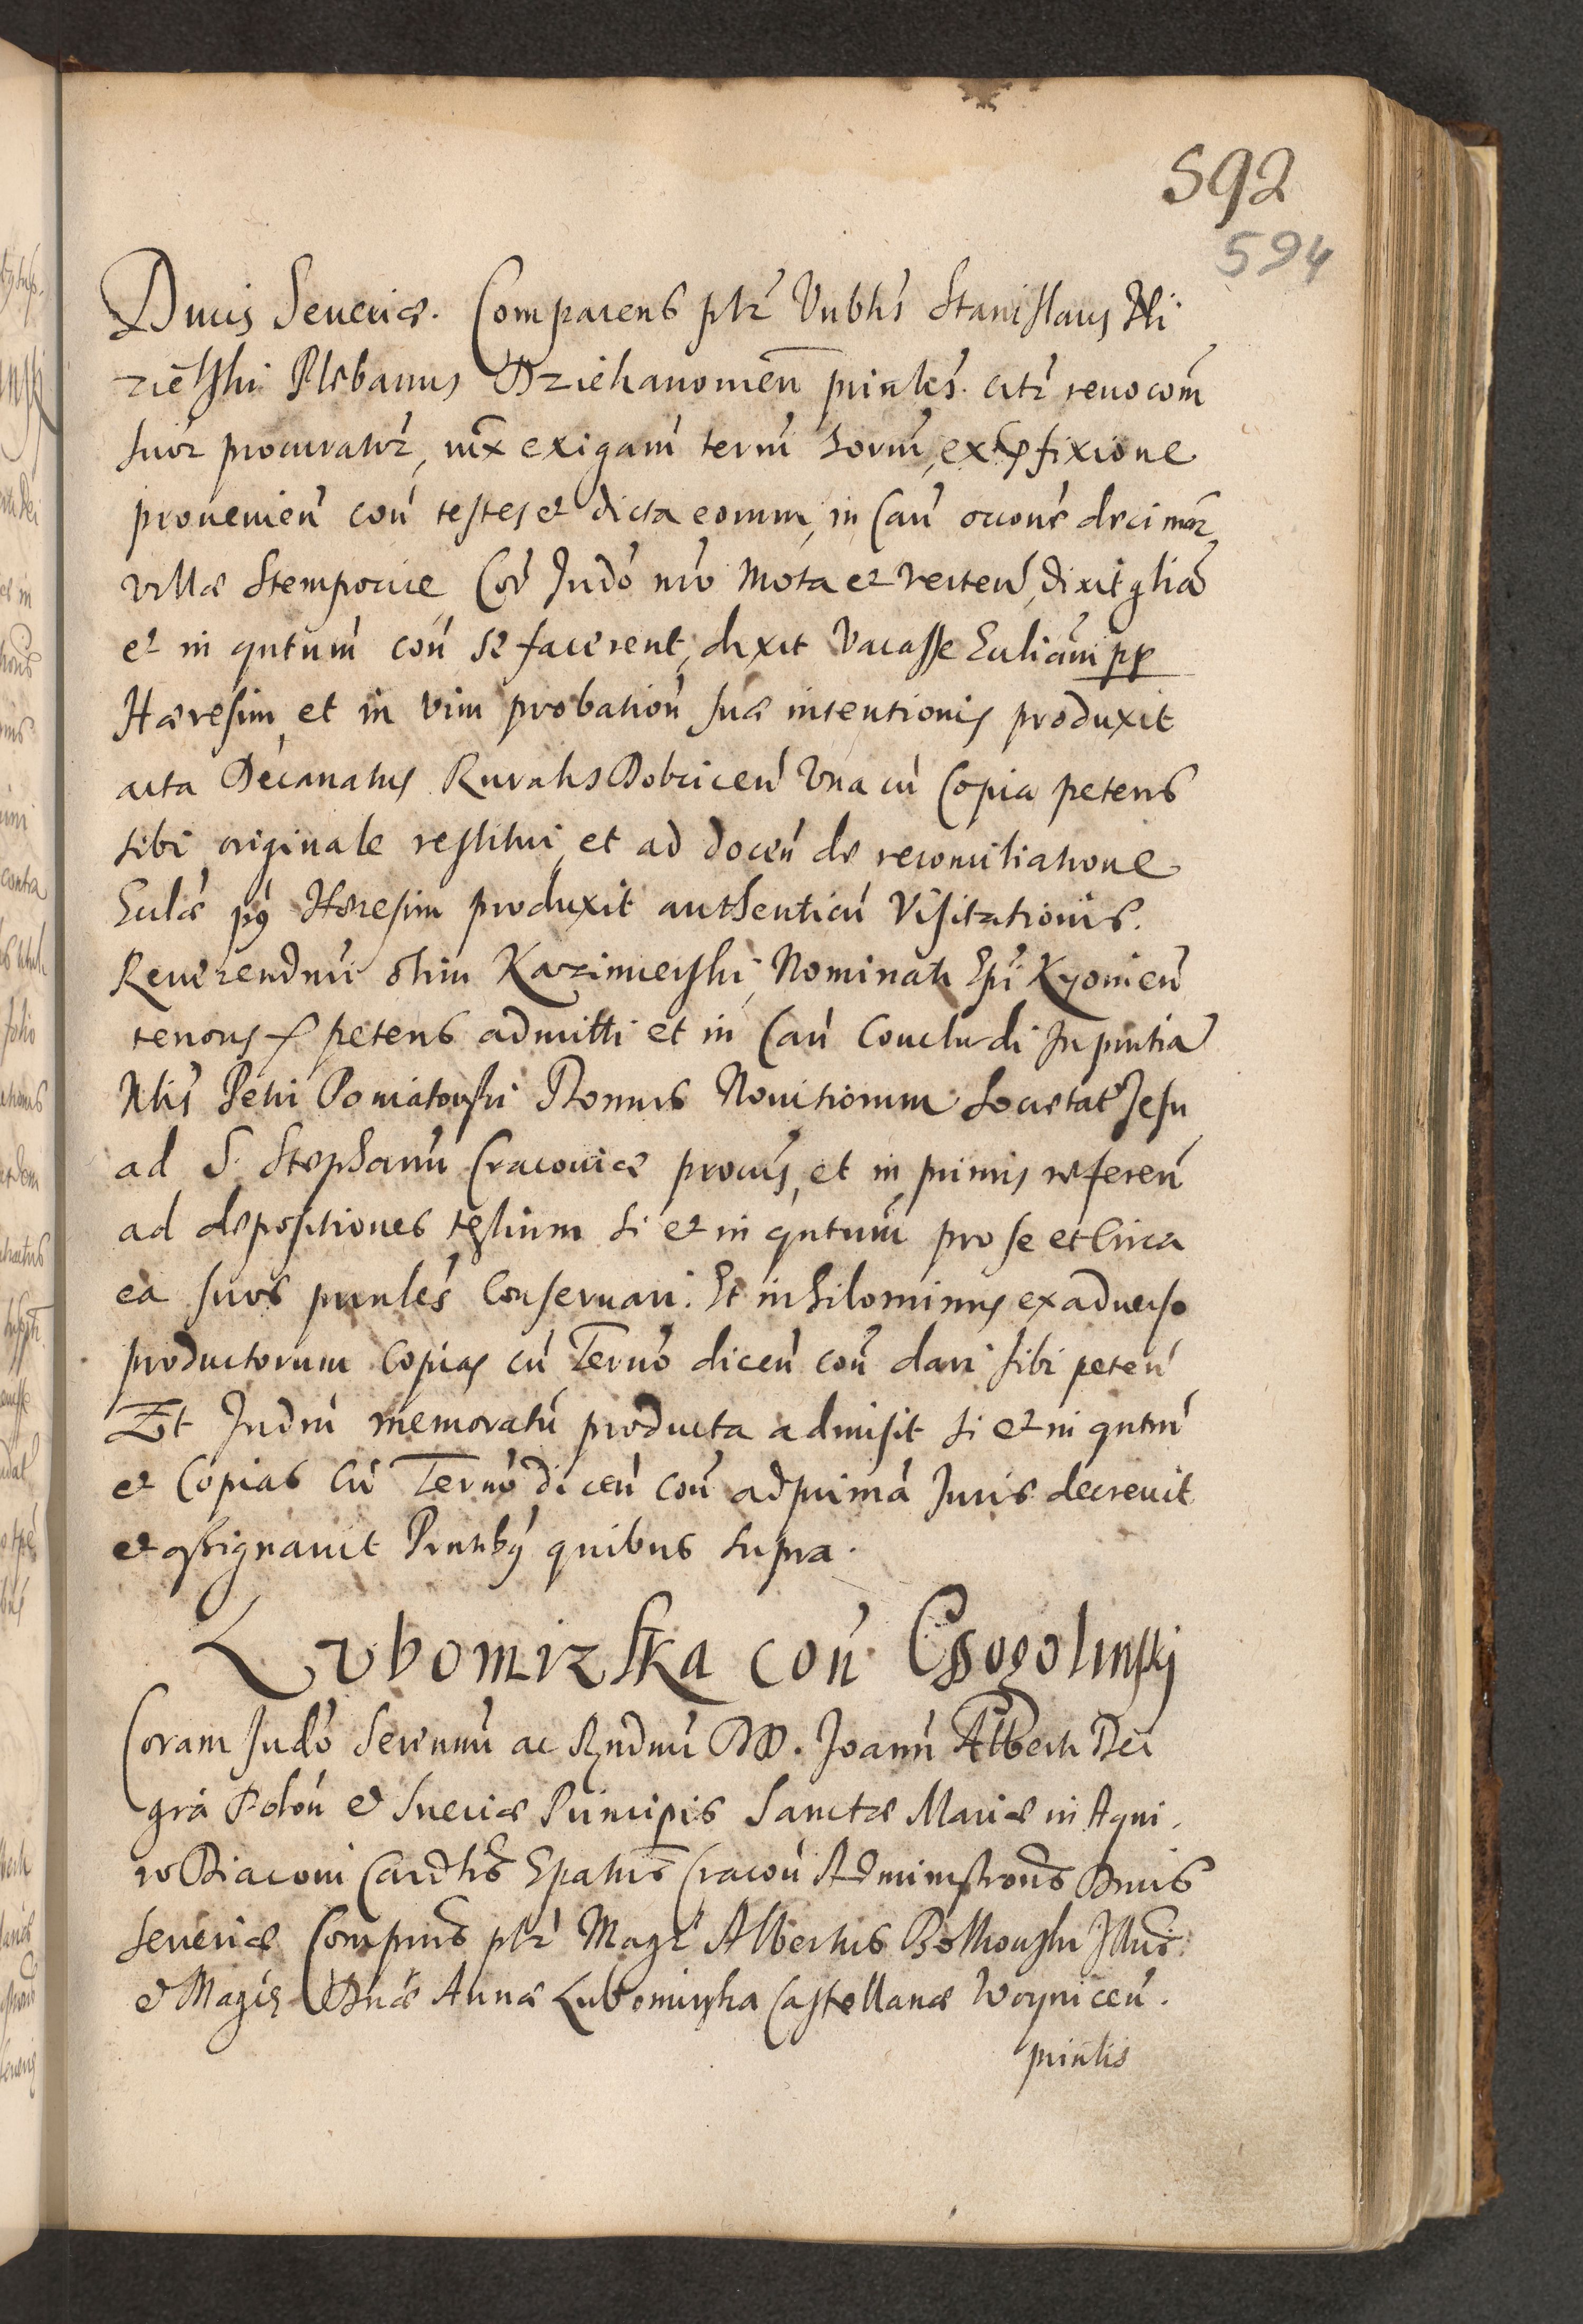 592
594
Ducis Seueriæ. Comparens plr̃ Vnblis̃ Stanislaus Ni
zieñski Plebanus Dziekanouien̄ prinles̃. citr̃ reuocom̃
suor̃ procurator̃, iux̃ exigam̃ term̃ horum̃, ex p̱fixione
prouenien̄ con̄ testes et dicta eorum, in Cau᷉ occone᷉ decimar̃
villæ Stemporice Cor᷉ Judo᷉ nr̃o mota et verten̄, dixit glia᷉
et in qntum᷉ con̄ se facerent, dixit vacasse Eccliam᷉ pp
Hæresim, et in vim probation᷉ suæ intentionis produxit
acta Decanatus Ruralis Dobricen̄ Vna cu᷉ Copia petens
sibi originale restitui, et ad docen̄ de reconciliatione
Eclæ pꝰ Hæresim produxit authenticu᷉ Visitationis.
Reuerendmi᷉ olim Kazimierski, Nominati Epi᷉ Kyouien̄
tenoris petens admitti et in Cau᷉ concludi In pntia᷉
Nlis᷉ Petri Poniatouski Domus Nouitiorum Societat᷉ Jesu
ad S. Stephanu᷉ Cracouiæ procris᷉, et in primis referen̄
ad depositiones testium si et in qntum᷉ pro se et circa
ea suos prinles᷉ conseruari. Et nihilominus ex aduerso
productorum copias cu᷉ Termo᷉ dicen̄ con̄ dari sibi peten̄
Et Judm᷉ memoratu᷉ producta admisit si et in qntm᷉
et Copias cu᷉ Termo᷉ dicen̄ con̄ ad prima᷉ Juris decreuit
et assignauit Pntibꝰ quibus supra.
Lubomirska con̄ Ossogolinski
Coram Judo᷉ Serenmi᷉ ac Rndmi᷉ DD. Joann᷉ Alberti Dei
gra᷉ Polon̄ & Sueciæ Principis Sanctæ Mariæ in Aqui.
ro Diaconi Cardlis᷉ Epatus᷉ Cracou᷉ Administrons᷉ Ducis
Seueriæ Comprns᷉ plr᷉ Magr᷉ Albertus Bolkouski Jllris᷉
& Magcæ᷉ Dnæ᷉ Annæ Lubomirska Castellanæ Woynicen̄.
prinlis